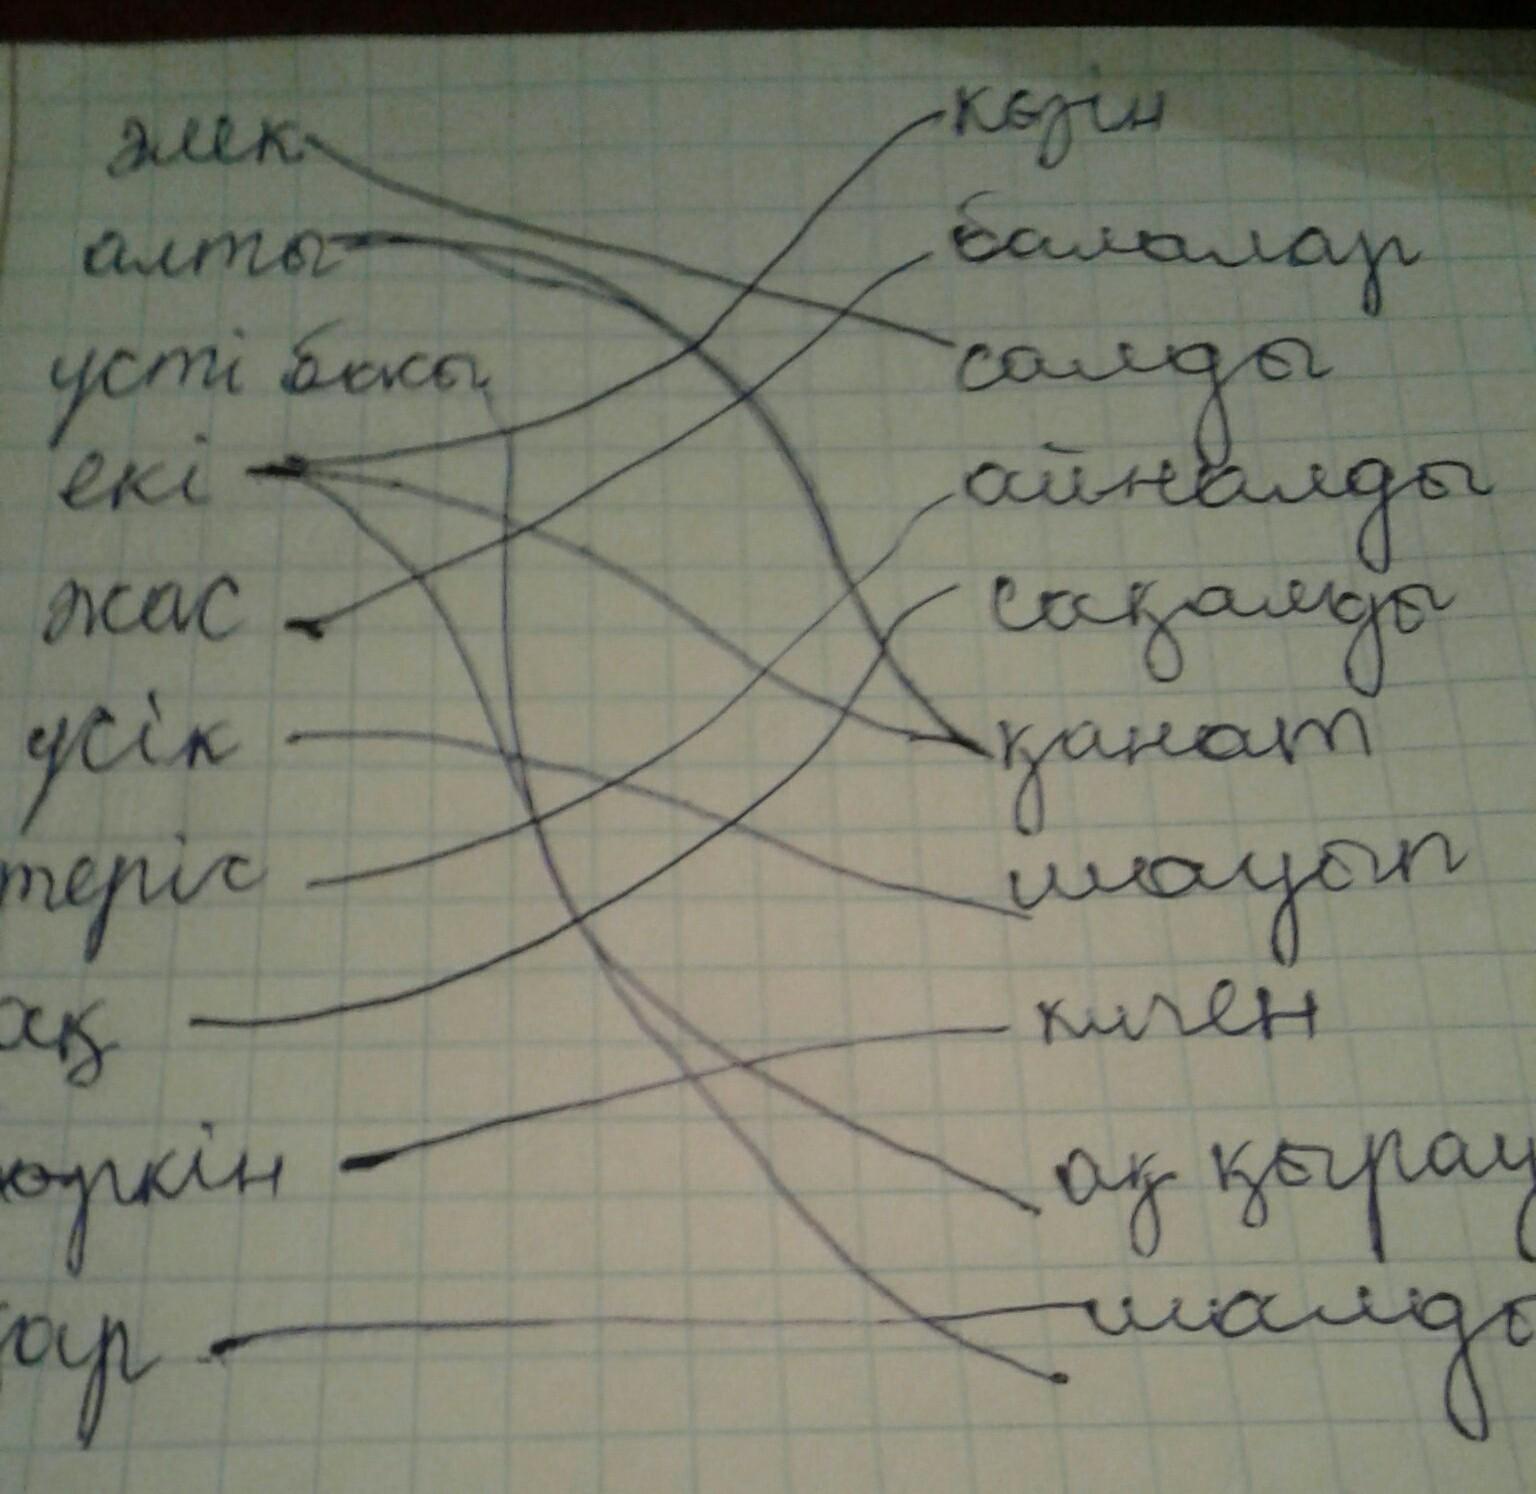 әлек көзін
алты балалар
үсті басы салды
екі айналды
жас сақалды
үсік қанат
теріс шауып
ақ киген
ақ қырау
қар шалды